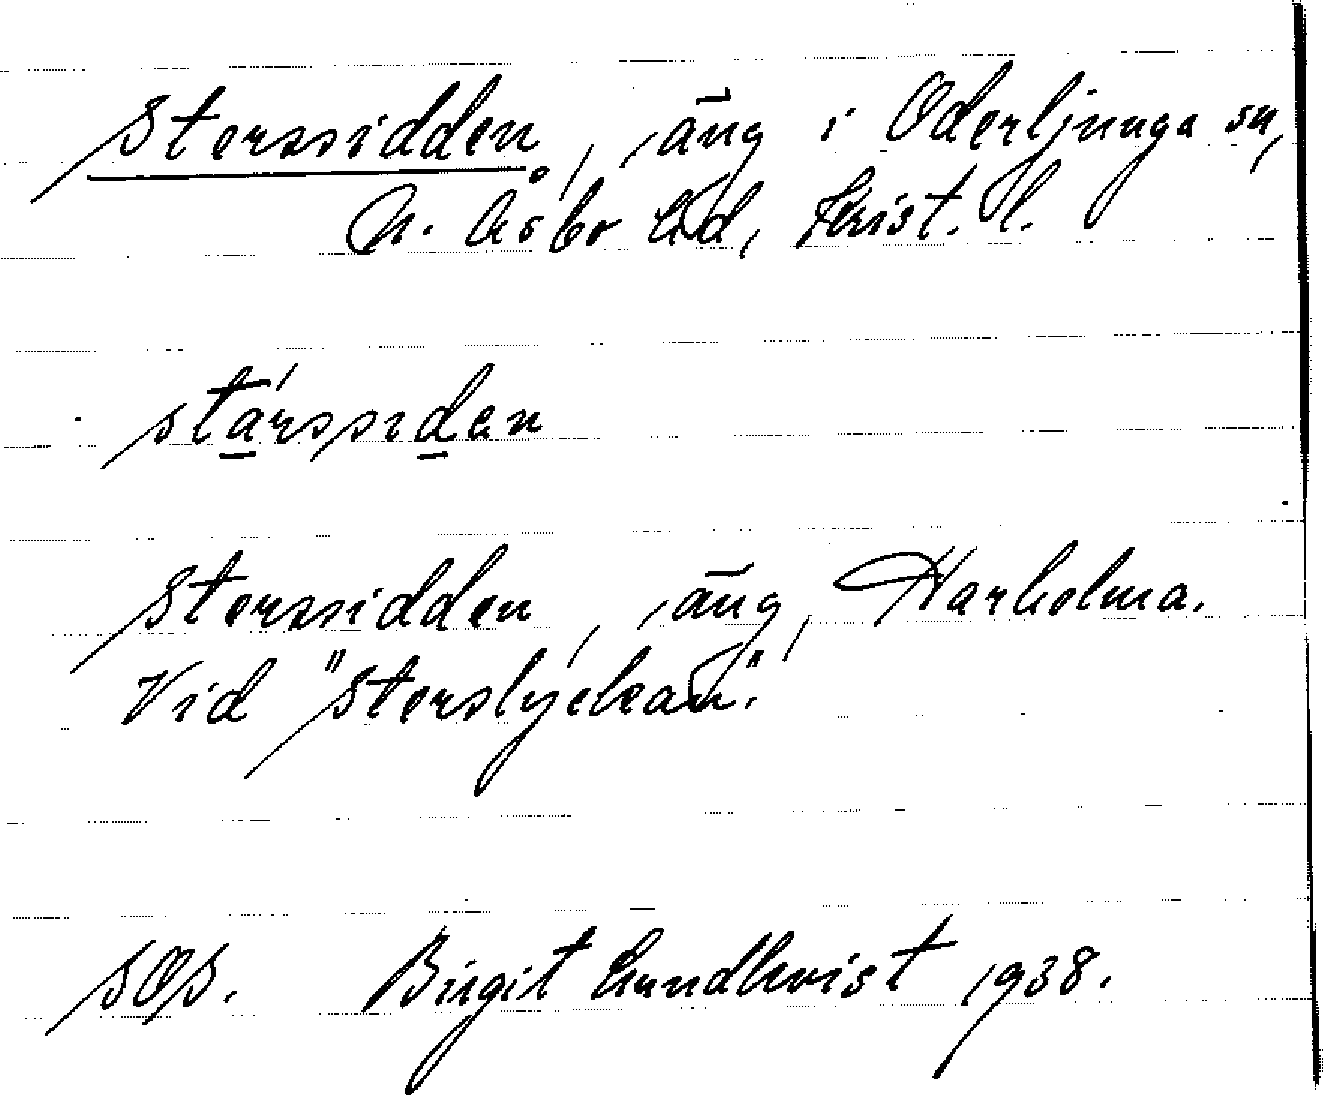 Sterssidden, äng i Oderljunga sn,
N. Åsbo hd, Krist. l.
stárssiden
Sterssidden, äng, Harholma.
Vid "Sterslyckan".
SOS. Birgit Lundkvist 1938.